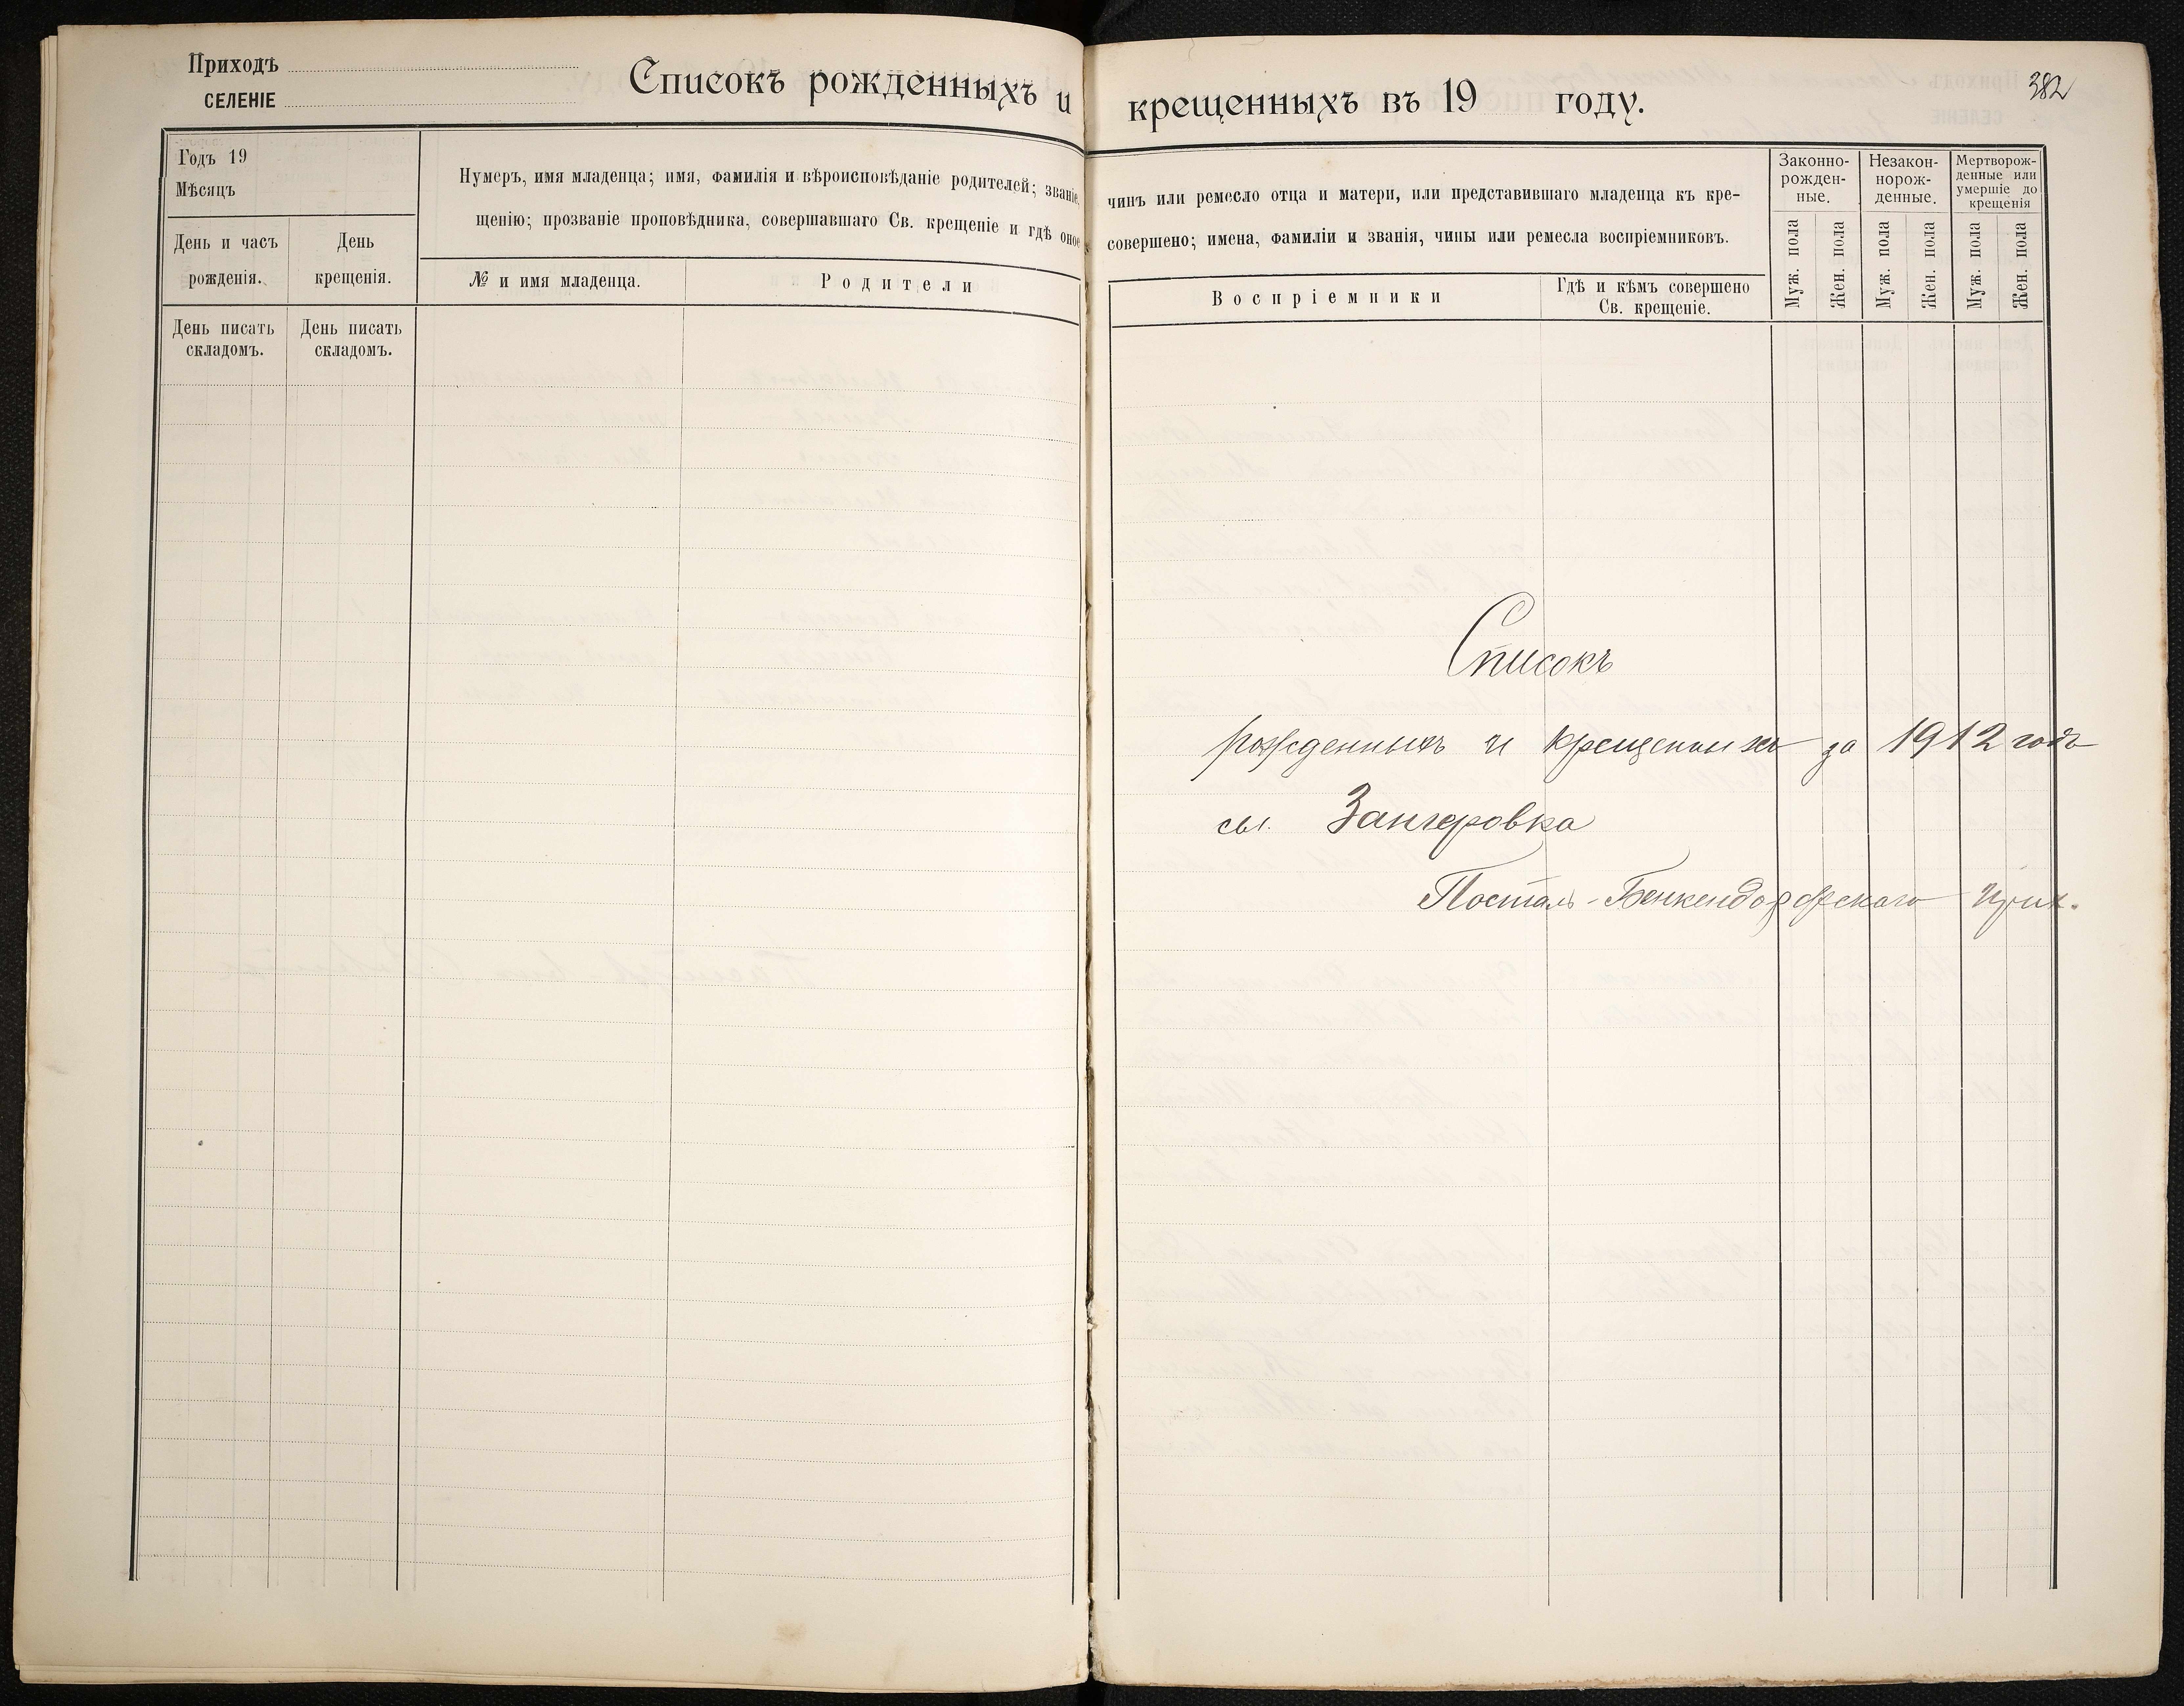 Приходъ
СЕЛЕНІЕ
Списокъ рожденныхъ и крещенныхъ въ 19 году.
382
Годъ 19
Мѣсяцъ
День и часъ рожденія.
День крещенія.
Нумеръ, имя младенца; имя, фамилія и вѣроисповѣданіе родителей; званіе, чинъ или ремесло отца и матери, или представившаго младенца къ кре-
щенію; прозваніе проповѣдника, совершавшаго Св. крещеніе и гдѣ оное совершено; имена, фамиліи и званія, чины или ремесла воспріемниковъ.
№ и имя младенца.
Родители
Воспріемники
Гдѣ и кѣмъ совершено
Св. крещеніе.
Законно-
рожден-
ные.
Незакон-
норож-
денные.
Мертворож-
денные или
умершіе до
крещенія
Муж. пола
Жен. пола
Муж. пола
Жен. пола
Муж. пола
Жен. пола
День писать
складомъ.
День писать
складомъ.
Списокъ
рожденныхъ и крещенныхъ за 1912 годъ
Зангеровка
Посталь-Бенкендорфскаго прих.